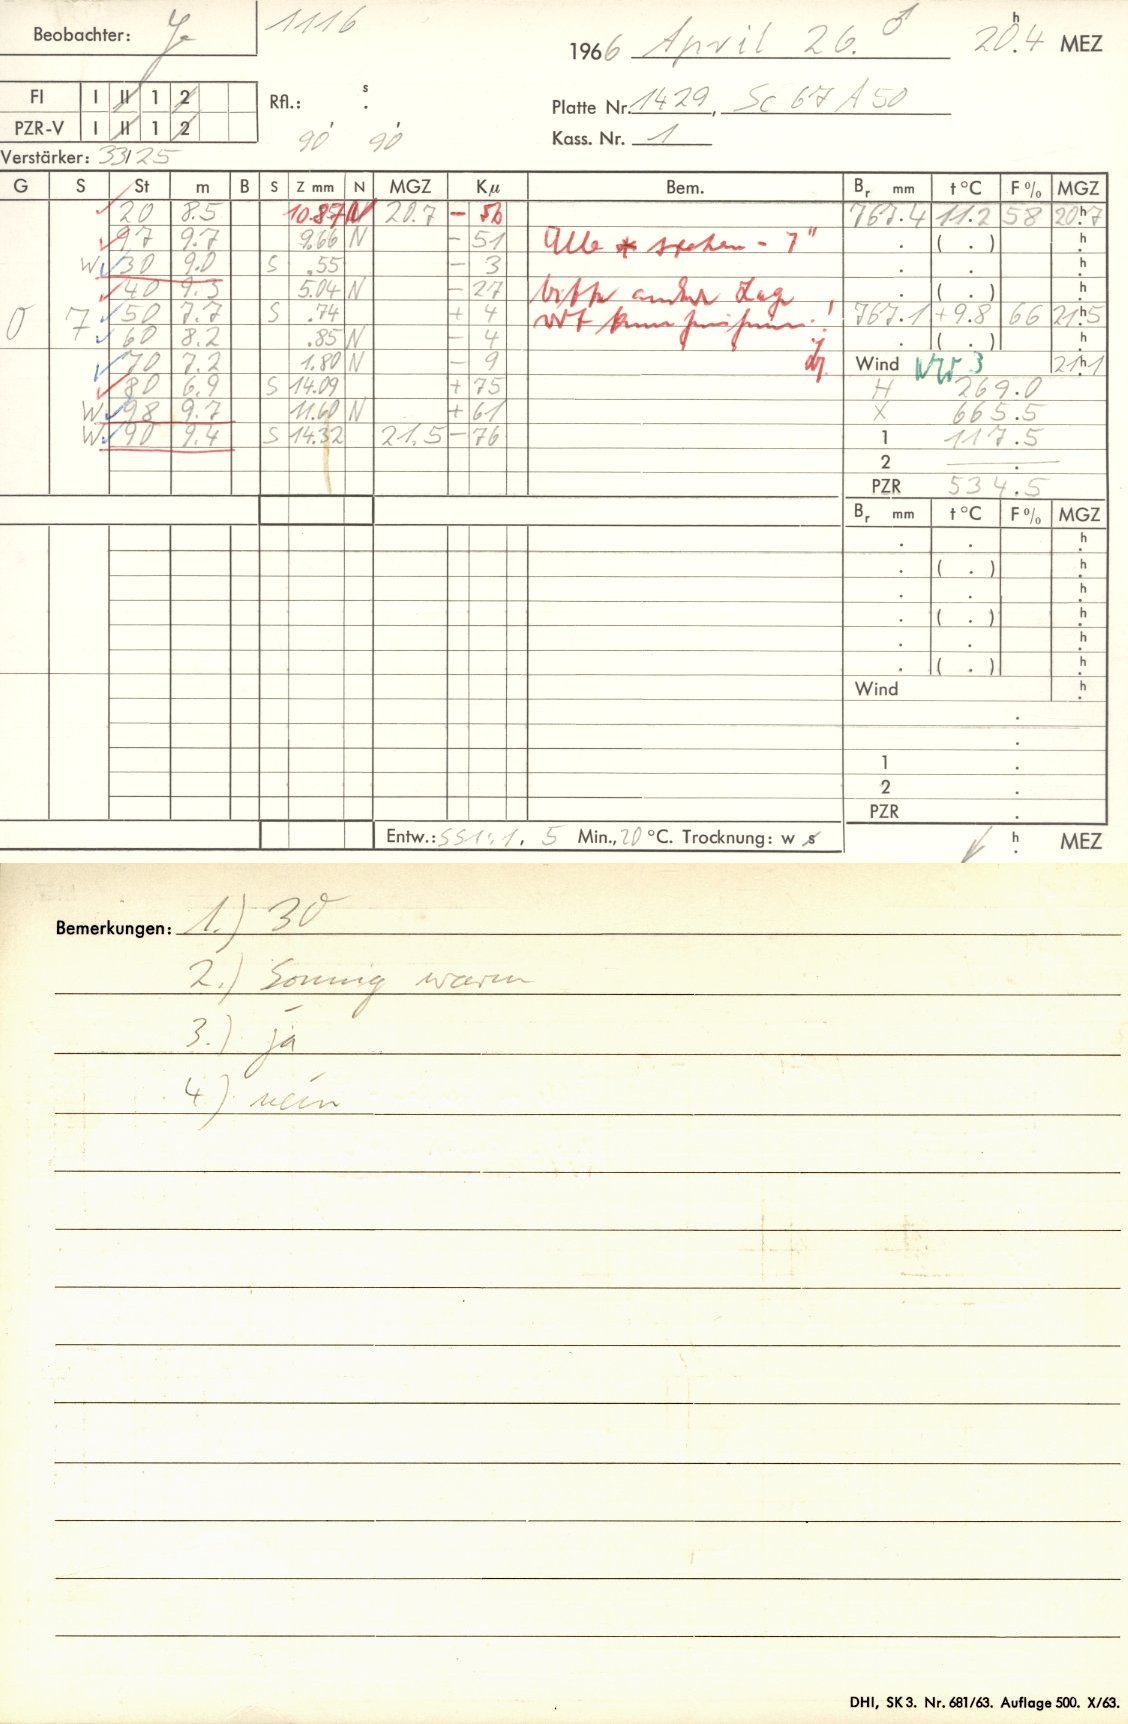 Beobachter:
1116
1966 April 26. ♂ 20h.4 MEZ
FI I II 1 2
PZR-V I II 1 2
Rfl.: s .
90' 90'
Platte Nr. 1429, Sc 67 A 50
Kass. Nr. 1
Verstärker: 33/25
G S St m B S Z mm N MGZ Kμ Bem. Br mm t °C F % MGZ
20 8.5 10.87 N 20.7 – 56 767.4 11.2 58 20h.7
97 9.7 9.66 N – 51 Alle * stehen – 7" . ( . ) h.
W 30 9.0 S .55 – 3 . . h.
40 9.3 5.04 N – 27 bitte Lage ! . ( . ) h.
0 7 50 7.7 S .74 + 4 767.1 +9.8 66 21h.5
60 8.2 .85 N – 4 . ( . ) h.
70 7.2 1.80 N – 9 Wind WSW 3 21h.1
80 6.9 S 14.09 + 75 H 269.0
W 98 9.7 11.60 N + 61 X 665.5
W 90 9.4 S 14.32 21.5 – 76 1 117.5
2 — . —
PZR 534.5
Br mm t °C F % MGZ
. . h.
. ( . ) h.
. . h.
. ( . ) h.
. . h.
. ( . ) h.
Wind h.
.
.
1 .
2 .
PZR .
Entw.: SS1:1, 5 Min., 20 °C. Trocknung: w s
h. MEZ
Bemerkungen: 1.) 30
2.) Sonnig warm
3.) ja
4.) nein
DHI, SK 3. Nr. 681/63. Auflage 500. X/63.